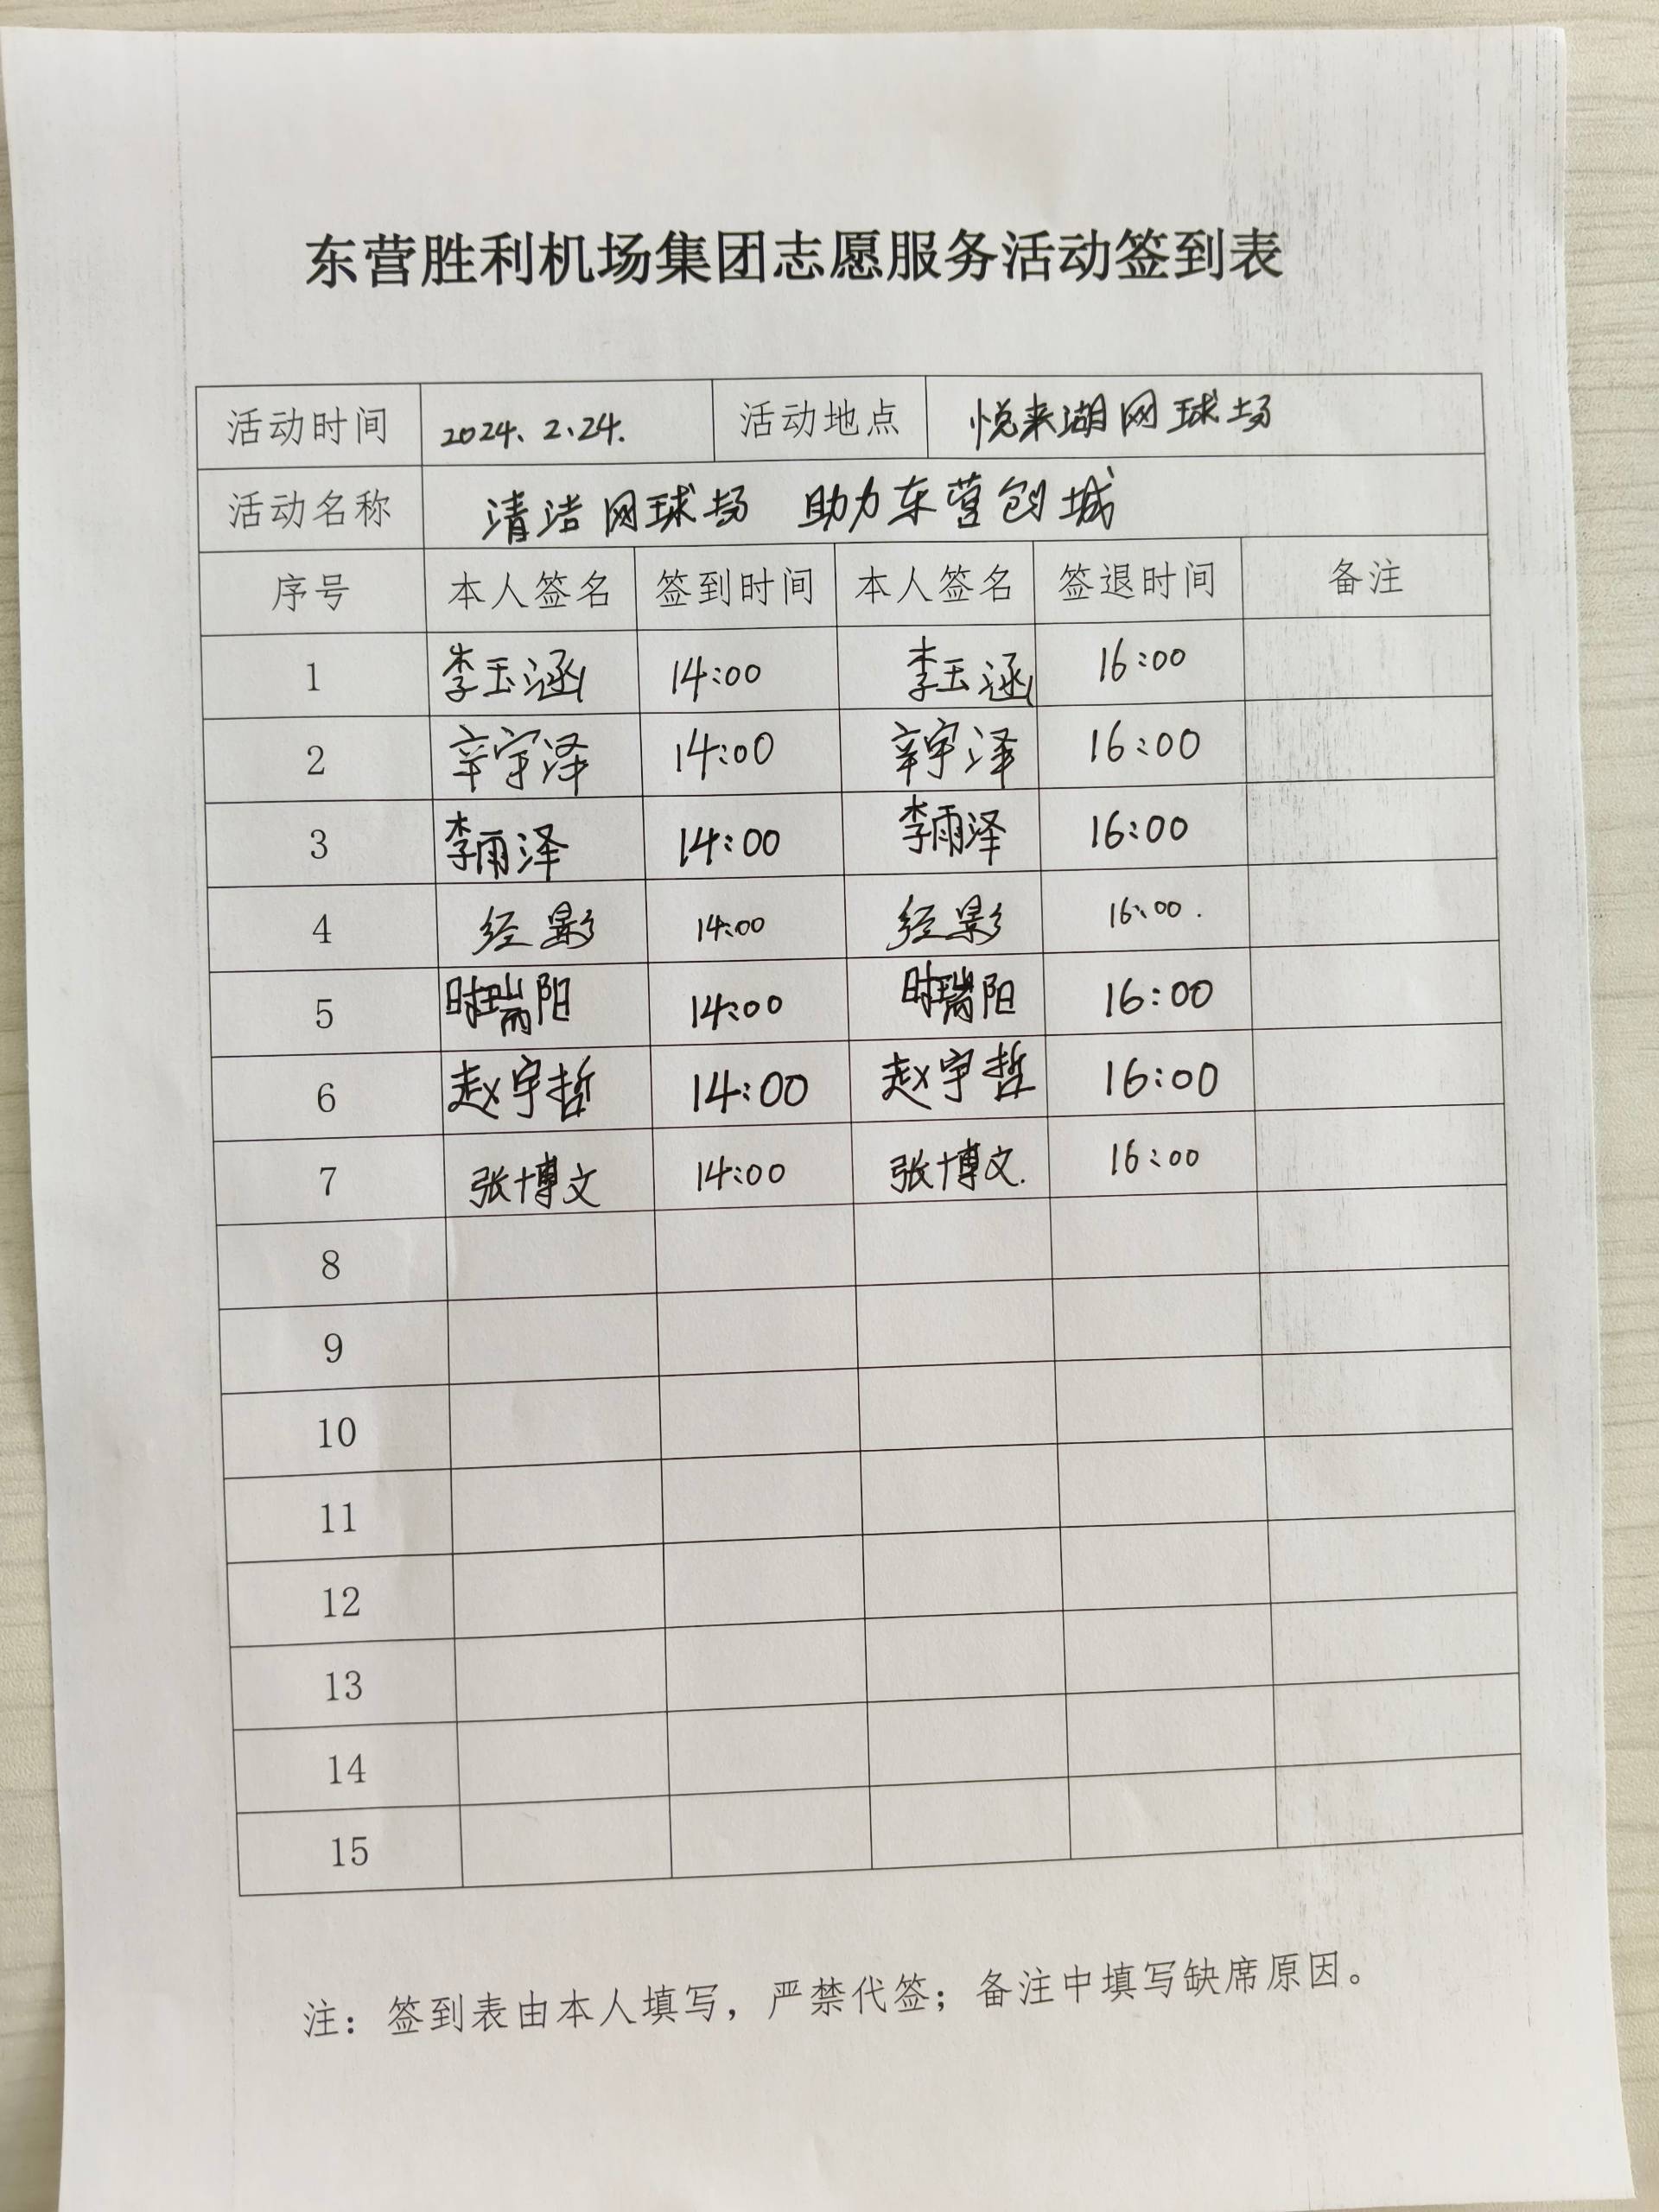 东营胜利机场集团志愿服务活动签到表
活动时间 2024、2、24. 活动地点 悦来湖网球场
活动名称 清洁网球场 助力东营创城
序号 本人签名 签到时间 本人签名 签退时间 备注
1 李玉涵 14:00 李玉涵 16:00
2 辛宇泽 14:00 辛宇泽 16:00
3 李雨泽 14:00 李雨泽 16:00
4 经影 14:00 经影 16:00.
5 时瑞阳 14:00 时瑞阳 16:00
6 赵宇哲 14:00 赵宇哲 16:00
7 张博文 14:00 张博文. 16:00
8
9
10
11
12
13
14
15
注：签到表由本人填写，严禁代签；备注中填写缺席原因。